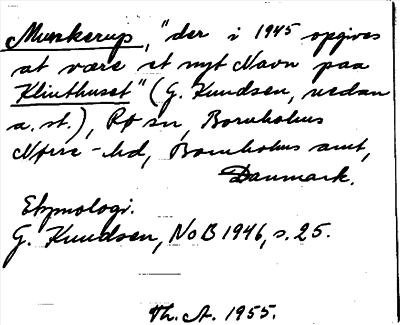 Munkerup, "der i 1945 opgives
at være et nyt Navn paa
Klinthuset" (G. Knudsen, nedan
a. st.), Rø sn, Bornholms
Nørre-hd, Bornholms amt,
Danmark.
Etymologi.
G. Knudsen, NoB 1946, s. 25.
Th. A. 1955.